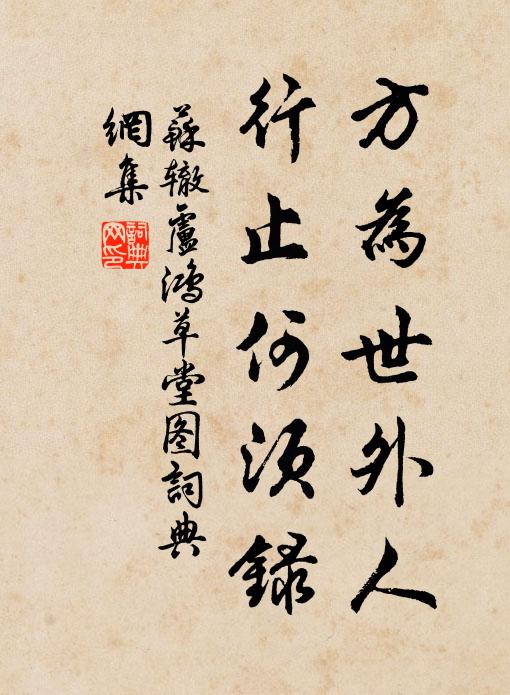 方為世外人
行止何須錄
蘇辙盧鴻草堂图詞典
網集
詞典
网印